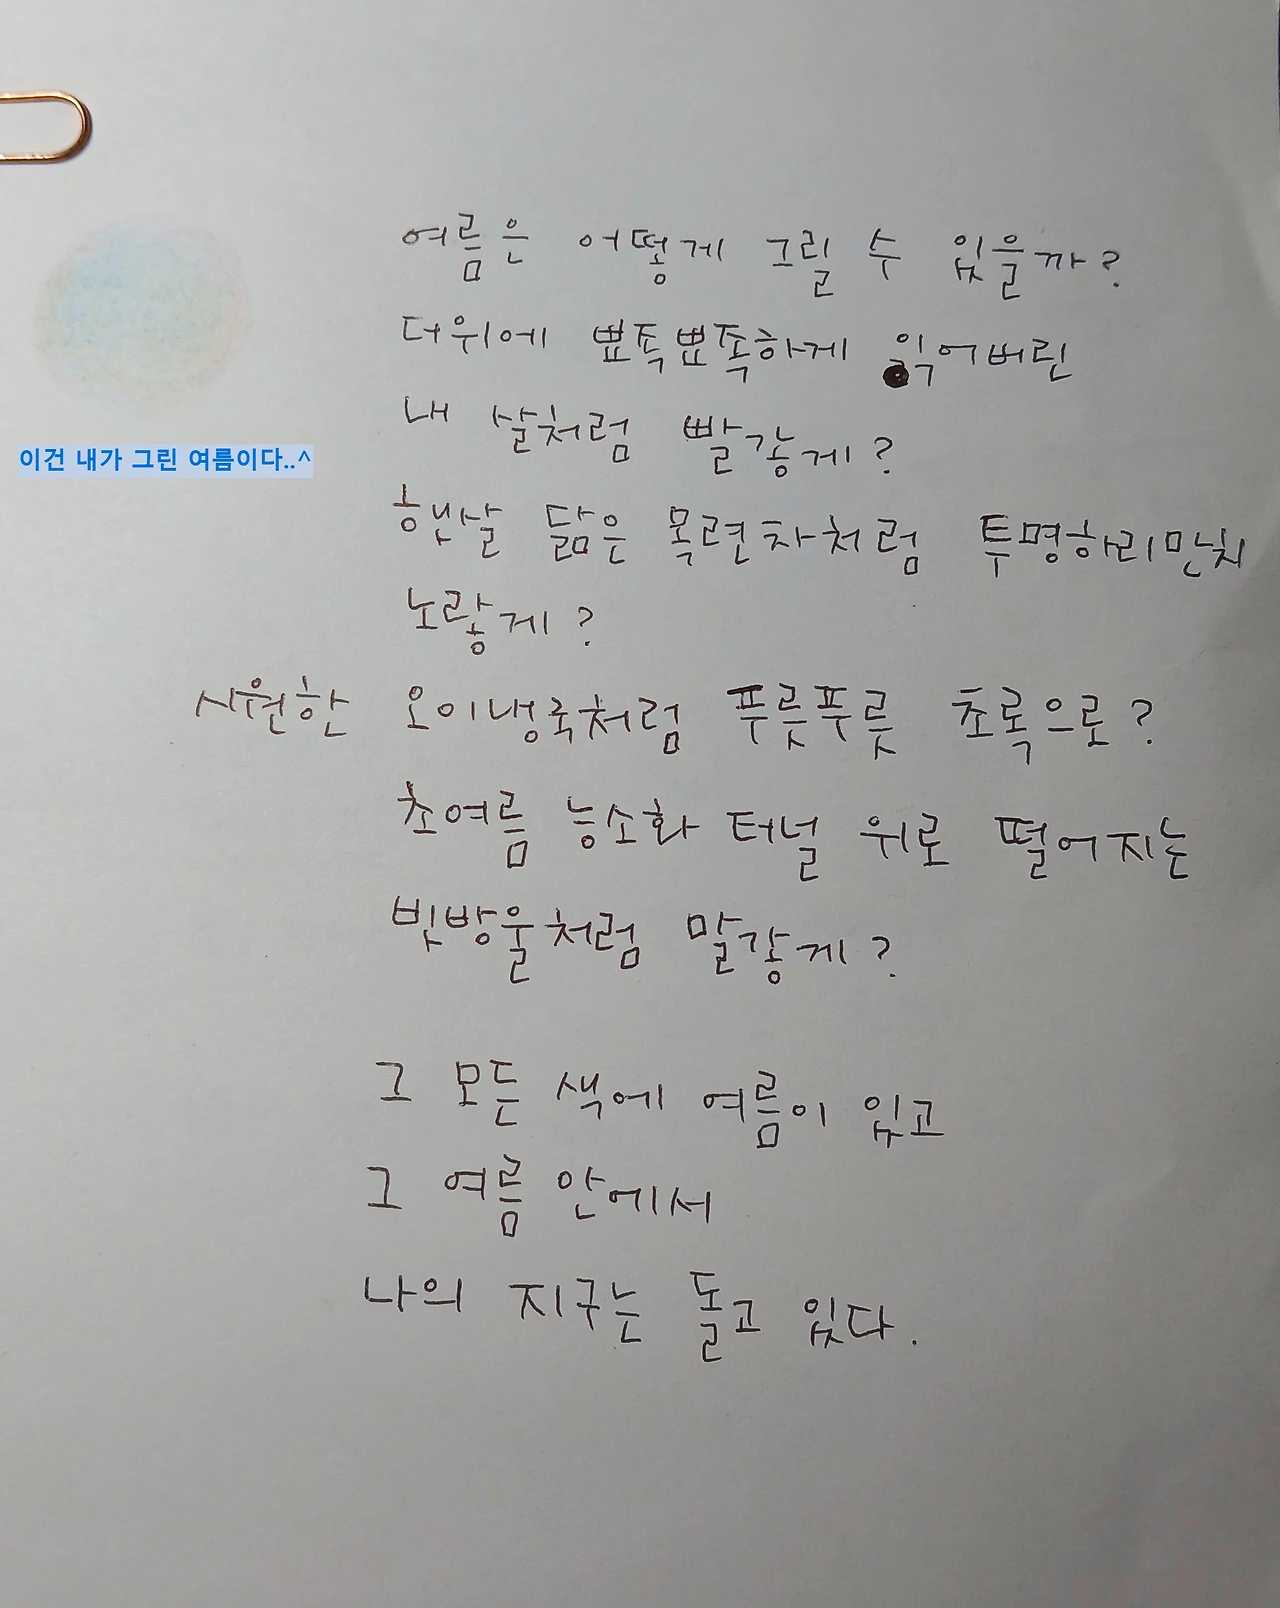 여름은 어떻게 그릴 수 있을까?
더위에 뾰족뾰족하게 익어버린
내 살처럼 빨갛게?
햇살 닮은 목련차처럼 투명하리만치
노랗게?
시원한 오이냉국처럼 푸릇푸릇 초록으로?
초여름 능소화 터널 위로 떨어지는
빗방울처럼 말갛게?
이건 내가 그린 여름이다..^
그 모든 색에 여름이 있고
그 여름 안에서
나의 지구는 돌고 있다.